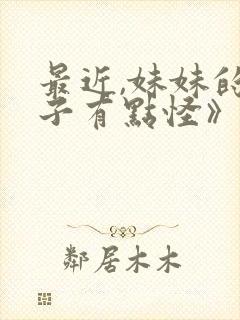 最近,妹妹的
子有點怪》
鄰居木木